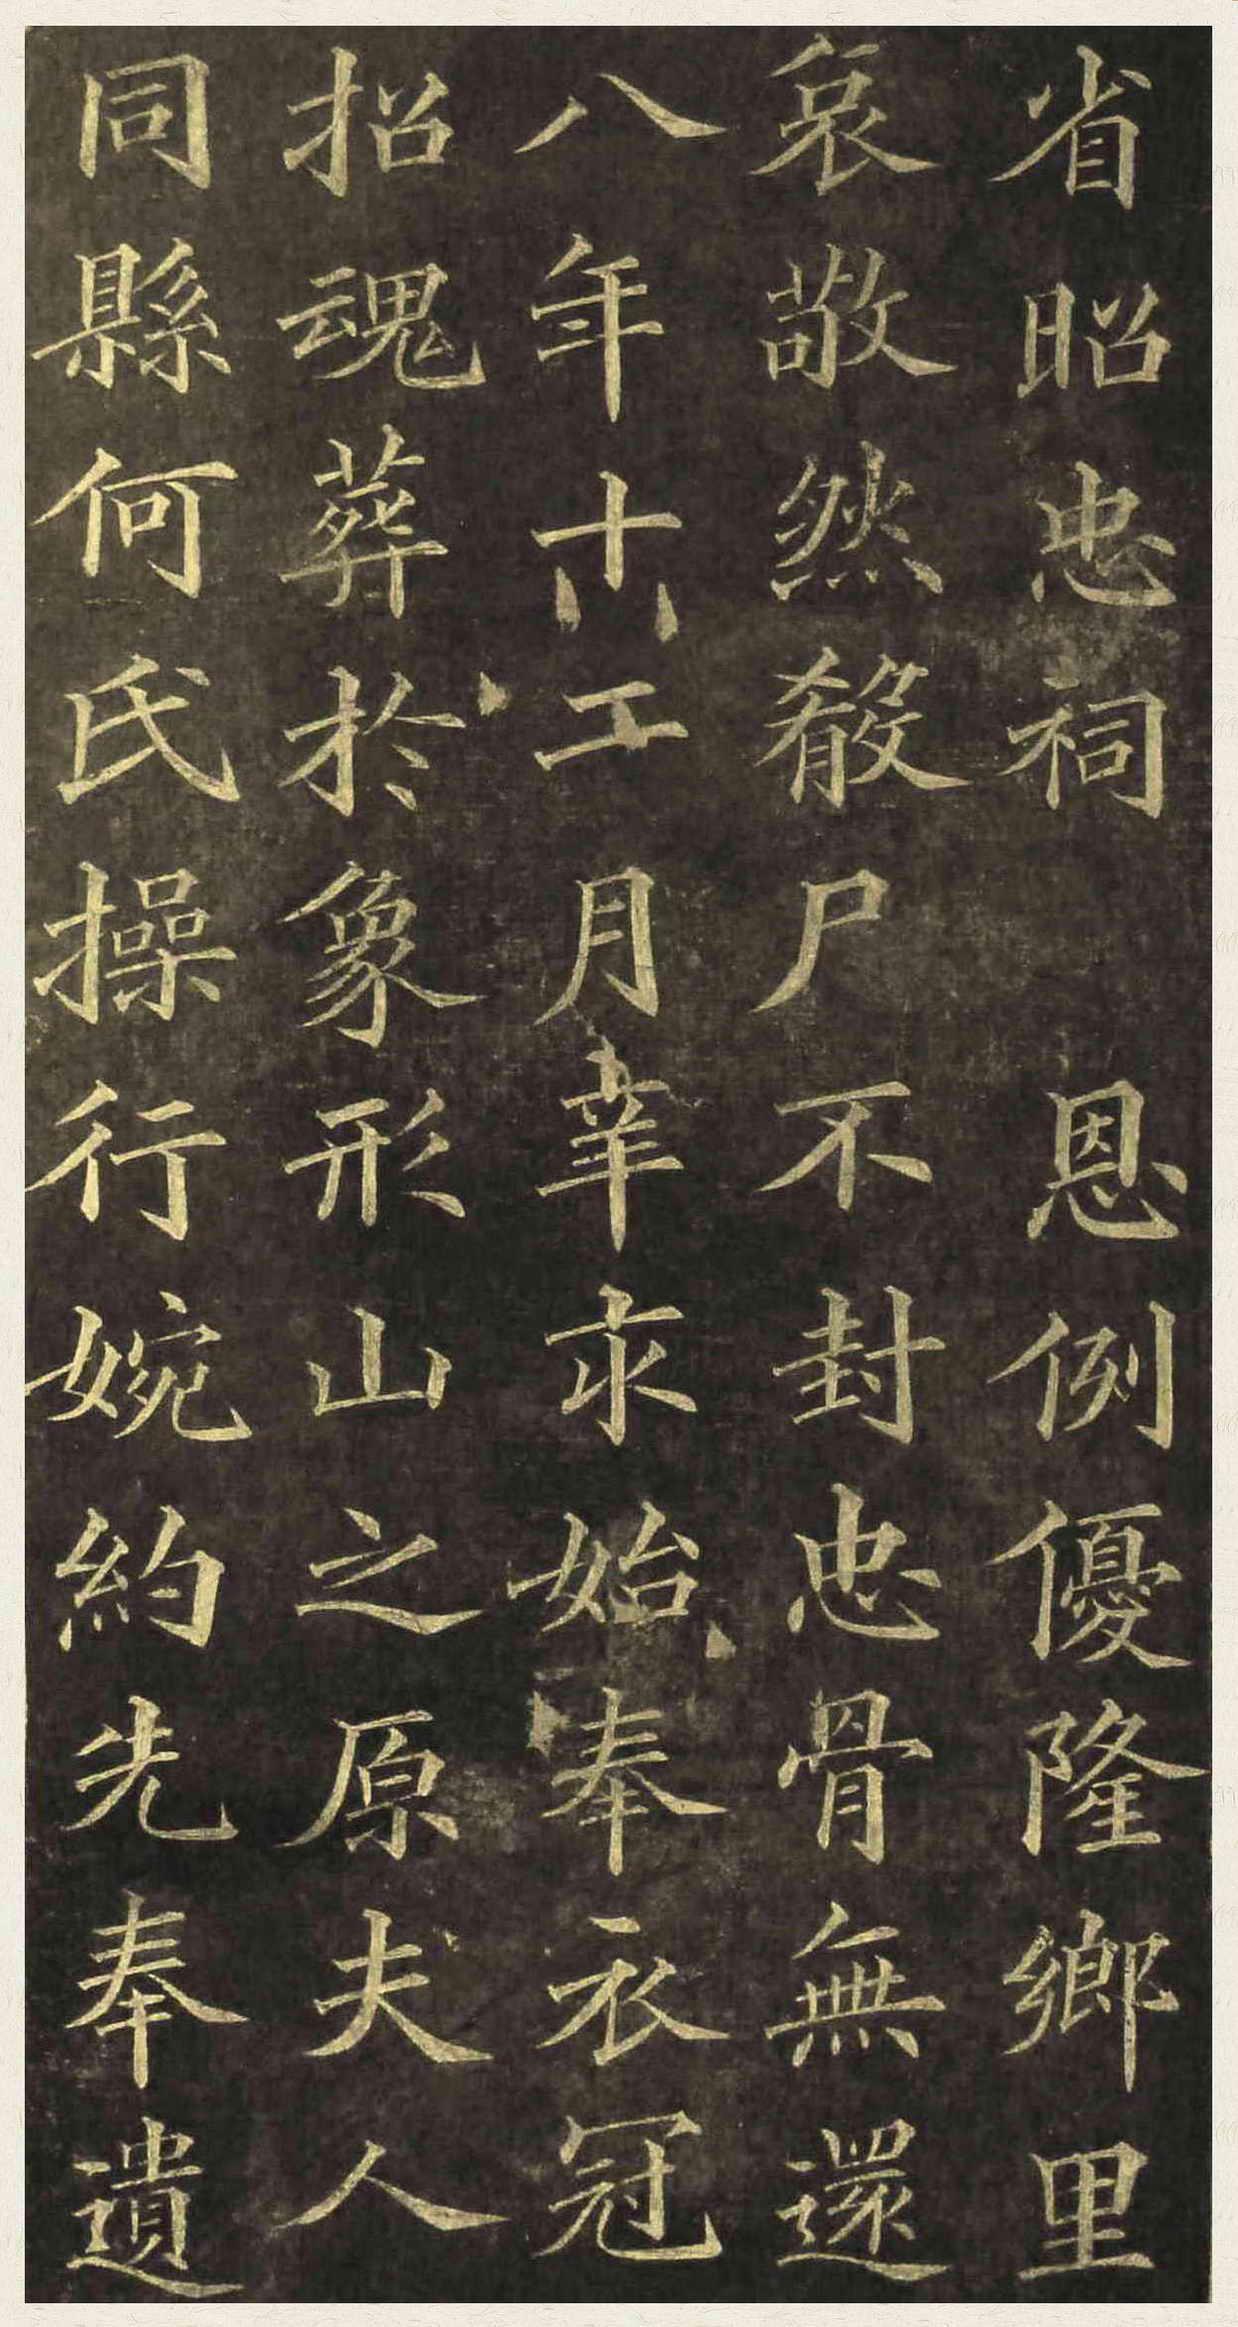 省昭忠祠　恩例優隆鄉里
哀敬然殽尸不封忠骨無還
八年十二月辛未始奉衣冠
招魂葬於象形山之原夫人
同縣何氏操行婉約先奉遺